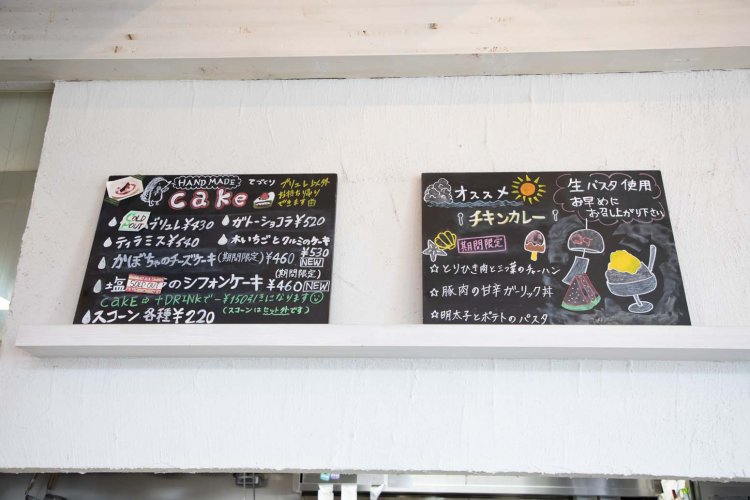 HAND MADE てづくり
cake
ブリュレ以外
お持ち帰り
できます
ブリュレ¥430
ガトーショコラ¥520
ティラミス¥540
木いちごとクルミのケーキ
¥530
かぼちゃのチーズケーキ(期間限定)¥460 NEW
(期間限定)
塩 SOLD OUT のシフォンケーキ ¥460 NEW
CAKE ⇨ +DRINKで ¥150引きになります
スコーン 各種¥220 (スコーンはセット外です)
オススメ
チキンカレー
期間限定
☆とりひき肉と三つ葉のチャーハン
☆豚肉の甘辛ガーリック丼
☆明太子とポテトのパスタ
生パスタ使用
お早めに
お召し上がり下さい